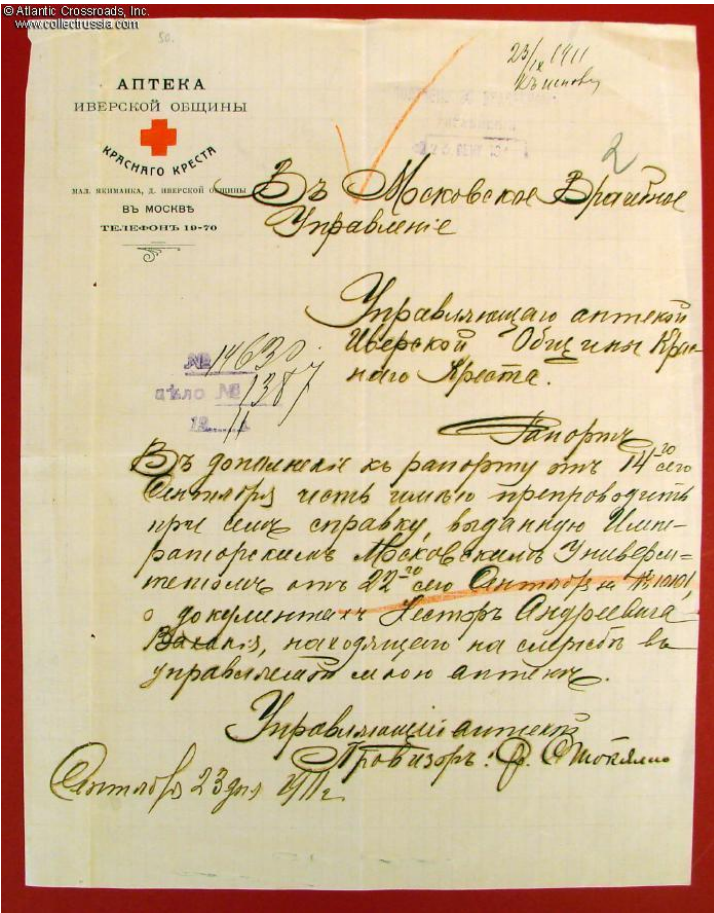 © Atlantic Crossroads, Inc.
www.collectrussia.com
50.
23/IX 1911
АПТЕКА
ИВЕРСКОЙ ОБЩИНЫ
КРАСНАГО КРЕСТА
МАЛ. ЯКИМАНКА, Д. ИВЕРСКОЙ ОБЩИНЫ
ВЪ МОСКВѢ
ТЕЛЕФОНЪ 19-70
2
Въ Московское Врачебное
Управленіе
Управляющаго аптекой
Иверской Общины Крас-
наго Креста.
№ 14630
дѣло № 1387
1911
Рапортъ
Въ дополненіе къ рапорту отъ 14го сего
Сентября честь имѣю препроводить
при семъ справку, выданную Импе-
раторскимъ Московскимъ Универси-
тетомъ отъ 22го сего Сентября за №
о документахъ Нестора Андреевича
находящаго на службѣ въ
управляемой мною аптекѣ.
Управляющій аптекой
Провизоръ:
Сентября 23 дня 1911 г.